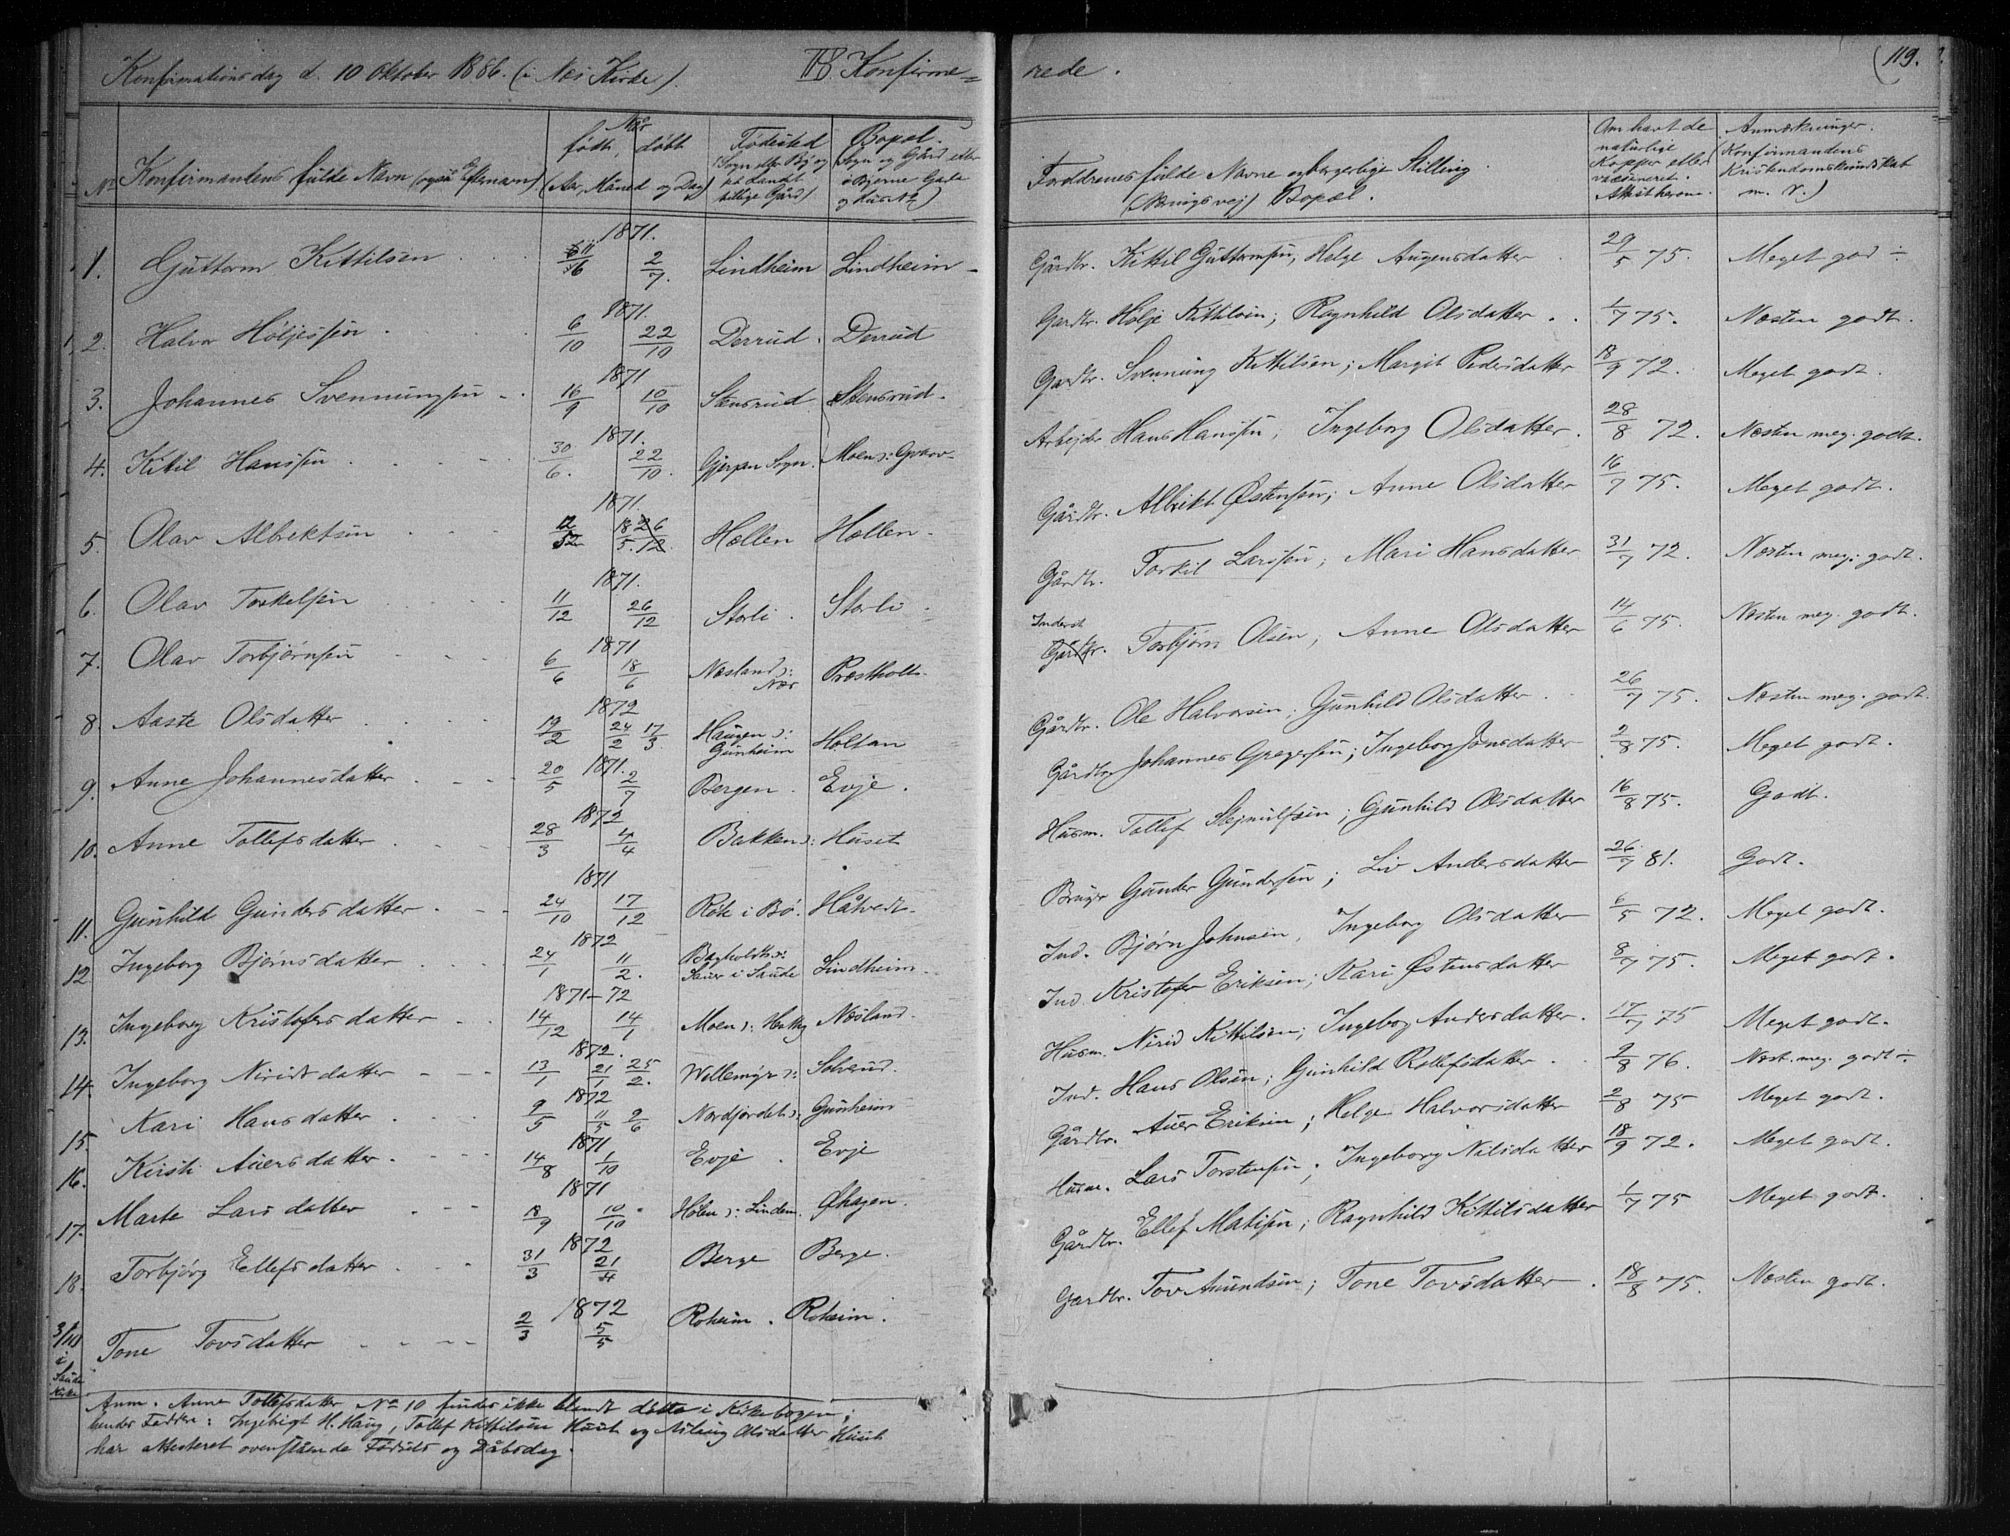 Konfirmationsdag d. 10 Oktober 1886. (i Næs Kirke).
III B Konfirme=
rede.
(119.
No
Konfirmantens fulde Navn (også Efternavn)
Når
født, døbt
(Aar, Måned og Dag)
Fødested
(Sogn eller By og
på Landet
tillige Gård)
Bopæl.
(Sogn og Gård eller
i Byerne Gade
og Husnr.)
Forældrenes fulde Navne og borgerlige Stilling
(Næringsvej) Bopæl.
Om havt de
naturlige
Kopper eller
vaccineret.
Attest herom.
Anmærkninger.
(Konfirmandens
Kristendomskundskab
m. v.)
1871.
1. Guttorm Kittilsen 11/6 2/7. Lindheim Lindheim Gårdbr. Kittil Guttormsen, Helge Augensdatter 29/5 75. Meget god ÷
1871.
2. Halvor Høljessen 6/10 22/10 Derrud. Derrud Gardbr. Holje Kittilsen; Ragnhild Olsdatter 1/7 75. Næsten godt.
1871
3. Johannes Svenningsen 16/9 10/10 Stensrud Stensrud. Gardbr. Svennung Kittilsen; Margit Pedersdatter 18/9 72. Meget godt.
1871.
4. Kitil Hanssen 30/6. 22/10. Gjerpen Sogn. Moen Arbejder Hans Hanssen, Ingeborg Olsdatter. 28/8 72. Næsten meg. godt.
1871.
5. Olav Albrektsen 12 18/5. 26/12 Hellen Hellen. Gårdbr. Albrekt Østensen; Anne Olsdatter 16/7 75. Meget godt.
1871.
6. Olav Torkelsen 11/12 26/12 Storli. Storli. Gårdbr. Torkil Larssen; Mari Hansdatter 31/7 72. Næsten meg. godt.
1871
7. Olav Torbjørnsen 6/6 18/6 Næsland Næs Præstholt Inderst Gårdbr. Torbjørn Olsen, Anne Olsdatter 14/6 75. Næsten meg. godt.
1872
8. Aaste Olsdatter 12/2 24/2 17/3 Haugen Gunheim Holtan Gårdbr. Ole Halvorsen; Gunhild Olsdatter 26/7 75. Næsten meg. godt.
1871.
9. Anne Johannesdatter 20/5 2/7 Bergen. Evje. Gårdbr. Johannes Gregersen; Ingeborg Jonsdatter 2/8 75. Meget godt.
1872
10. Anne Tollefsdatter 28/3 4/4 Bakken Huset Husm. Tollef; Gunhild Olsdatter 16/8 75. Godt.
1871
11. Gunhild Gundersdatter 24/10 17/12 i Bø. Håtvedt. Bruger Gunder Gundersen; Liv Andersdatter 26/7 81. Godt.
1872
12 Ingeborg Bjørnsdatter 24/1 11/2. i Saude Lindheim. Ind. Bjørn Johnsen, Ingeborg Olsdatter 6/5 72. Meget godt.
1871-72
13. Ingeborg Kristofersdatter 14/12 14/1 Moen Næsland. Ind. Kristofer Eriksen; Kari Østensdatter 8/7 75. Meget godt.
1872.
14. Ingeborg Niridsdatter 13/1 21/1 25/2. Wellemyr Solverud. Husm. Nirid Kittilsen; Ingeborg Andersdatter. 17/7 75 Meget godt.
1872
15. Kari Hansdatter 9/5 11/5 9/6 Nordjordet Gunheim Ind. Hans Olsen; Gunhild Rollefsdatter 9/8 76. Næst. meg. godt ÷
1871
16. Kirsti Auensdatter. 14/8 1/10 Evje. Evje Gårdbr. Auen Eriksen; Helge Halvorsdatter 2/8 75 Meget godt.
1871
17. Marte Larsdatter 18/9 10/10 Holen Øhagen. Husm. Lars Torstensen; Ingeborg Nilsdatter 18/9 72. Meget godt.
1872
18. Torbjørg Ellefsdatter 31/3 21/4 Berge Berge. Gårdbr. Ellef Matisen; Ragnhild Kittilsdatter 1/7 75 Meget godt.
1872
3/10 i Saude Kirke Tone Tovsdatter 2/3 5/5 Roheim. Roheim. Gardbr. Tov Amundsen; Tone Tovsdatter 18/8 75. Næsten godt.
Anm. Anne Tollefsdatter No 10 findes ikke blandt døbte i Kirkebogen;
hendes Faddere: Ingebrigt H. Haug, Tollef Kittilsen Huset og Olsdatter Huset
har attesteret ovenstående Fødsels og Dåbsdag.